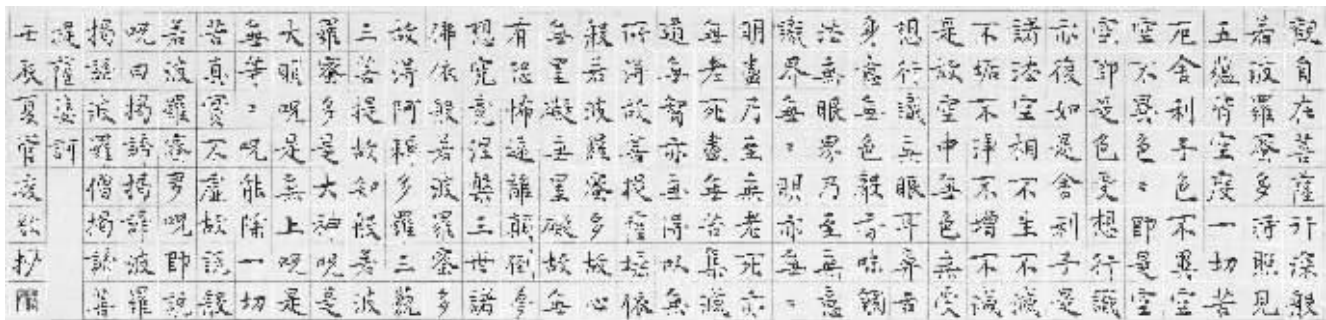 觀自在菩薩行深般
若波羅蜜多時照見
五蘊皆空度一切苦
厄舍利子色不異空
空不異色〻即是空
空即是色受想行識
亦復如是舍利子是
諸法空相不生不滅
不垢不淨不增不減
是故空中無色無受
想行識無眼耳鼻舌
身意無色聲香味觸
法無眼界乃至無意
識界無〻明亦無〻
明盡乃至無老死亦
無老死盡無苦集滅
道無智亦無得以無
所得故菩提薩埵依
般若波羅蜜多故心
無罣礙無罣礙故無
有恐怖遠離顛倒夢
想究竟涅槃三世諸
佛依般若波羅蜜多
故得阿耨多羅三藐
三菩提故知般若波
羅蜜多是大神呪是
大明呪是無上呪是
無等〻呪能除一切
苦真實不虛故說般
若波羅蜜多呪即說
呪曰揭諦揭諦波羅
揭諦波羅僧揭諦菩
提薩婆訶
壬辰夏管抄